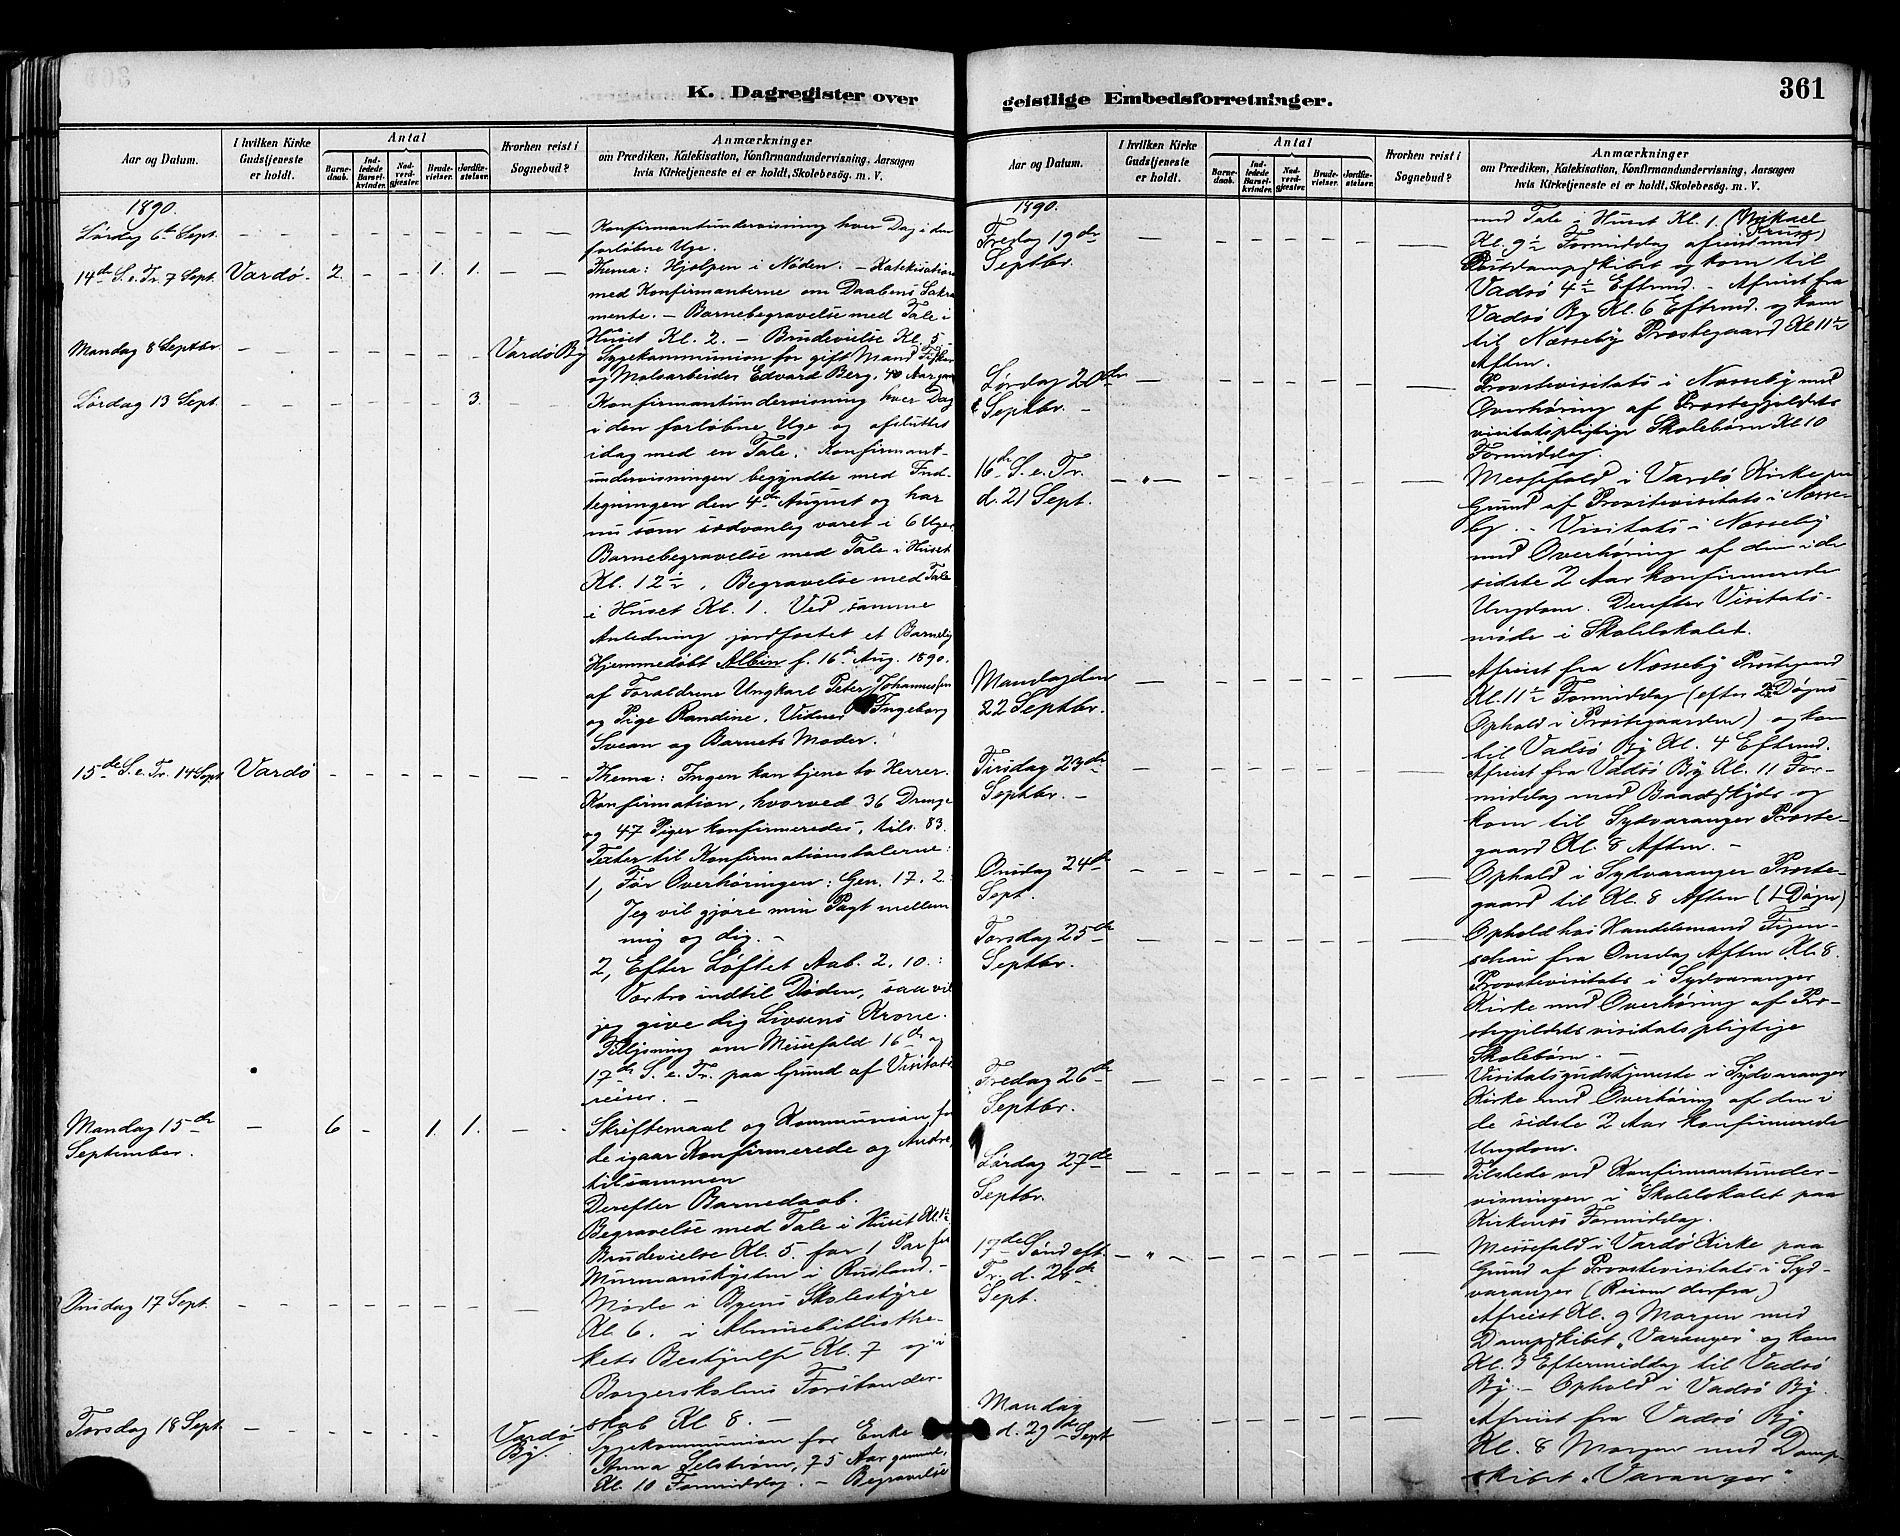 K. Dagregister over
Aar og Datum.
I hvilken Kirke Gudstjeneste er holdt.
Antal
Barnedaab.
Indledede Barselkvinder.
Nadverdgjester.
Brudevielser.
Jordfæstelser.
Hvorhen reist i Sognebud?
Anmærkninger
om Prædiken, Katekisation, Konfirmandundervisning, Aarsagen
hvis Kirketjeneste ei er holdt, Skolebesøg. m. V.
1890.
Lørdag 6te Sept. – – – – – – –
Konfirmantundervisning hver Dag i den
forløbne Uge.
14de S. e. Tr. 7 Sept. Vardø. 2. – – 1. 1. – –
Thema: Hjælpen i Nøden. – Katekisation
med Konfirmanterne om Daabens Sakra
mente. – Barnebegravelse med Tale i
Huset Kl. 2. – Brudevielse Kl. 5.
Mandag 8 Septbr. – – – – – – Vardø By
Sygekommunion for gift Mand Fisker
og Malearbeider Edvard Berg, 40 Aar gml.
Lørdag 13 Sept. – – – – – 3. – –
Konfirmantundervisning hver Dag
i den forløbne Uge og afsluttet
idag med en Tale. Konfirmant-
undervisningen begyndte med Ind-
tegningen den 4de August og har
nu som sædvanlig varet i 6 Uger.
Barnebegravelse med Tale i Huset
Kl. 12½. Begravelse med Tale
i Huset Kl. 1. Ved samme
Anledning jordfæstet et Barnelig
Hjemmedøbt Albin f. 16de Aug. 1890.
af Forældrene Ungkarl Peter Johannessen
og Pige Randine. Vidner Ingeborg
Svean og Barnets Moder.
15de S. e. Tr. 14 Sept. Vardø – – – – – – –
Thema: Ingen kan tjene to Herrer.
Konfirmation, hvorved 36 Drenge
og 47 Piger konfirmeredes, tils. 83.
Texter til Konfirmationstalerne:
1, Før Overhøringen: Gen. 17. 2:
Jeg vil gjøre min Pagt mellem
mig og dig. –
2, Efter Løftet Aab. 2. 10.:
Vær tro indtil Døden, saa vil
jeg give dig Livsens Krone.
Tillysning om Messefald 16de og
17de S. e. Tr. paa Grund af Visitats
reiser. –
Mandag 15de
September. – 6 – 1. 1. – –
Skriftemaal og Kommunion for
de igaar Konfirmerede og Andre,
tilsammen
Derefter Barnedaab.
Begravelse med Tale i Huset Kl. 1½
Brudevielse Kl. 5. for 1 Par fra
Murmanskysten i Rusland. –
Onsdag 17 Sept. – – – – – – –
Møde i Byens Skolestyre
Kl. 6. i Almuebibliothe-
kets Bestyrelse Kl. 7 og i
Borgerskolens Forstander-
skab Kl. 8. –
Torsdag 18 Sept. – – – – – – Vardø
By.
Sygekommunion for Enke
Anna Selstrøm, 75 Aar gammel,
Kl. 10 Formiddag. – Begravelse
geistlige Embedsforretninger.
361
Aar og Datum.
I hvilken Kirke Gudstjeneste er holdt.
Antal
Barnedaab.
Indledede Barselkvinder.
Nadverdgjester.
Brudevielser.
Jordfæstelser.
Hvorhen reist i Sognebud?
Anmærkninger
om Prædiken, Katekisation, Konfirmandundervisning, Aarsagen
hvis Kirketjeneste ei er holdt, Skolebesøg. m. V.
1890.
med Tale i Huset Kl. 1. (Mikael
Kruse)
Fredag 19de
Septbr. – – – – – – –
Kl. 9½ Formiddag afreist med
Postdampskibet og kom til
Vadsø 4½ Eftmd. – Afreist fra
Vadsø By Kl. 6 Eftmd. og kom
til Næsseby Præstegaard Kl 11½
Aften.
Lørdag 20de
Septbr. – – – – – – – –
Provstevisitats i Næsseby med
Overhøring af Præstegjeldets
visitatspligtige Skolebørn Kl 10
Formiddag.
16de S. e. Tr.
d. 21 Sept. – „ – – – – – – –
Messefald i Vardø Kirke paa
Grund af Provstevisitats i Næsse-
by. – Visitats i Næsseby
med Overhøring af den i de
sidste 2 Aar konfirmerede
Ungdom. Derefter Visitats-
møde i Skolelokalet.
Mandag den
22 Septbr. – – – – – – –
Afreist fra Næsseby Præstegaard
Kl. 11½ Formiddag (efter 2½ Døgns
Ophold i Præstegaarden) og kom
til Vadsø By Kl. 4 Eftmd.
Tirsdag 23de
Septbr. – – – – – – – –
Afreist fra Vadsø By Kl. 11 For-
middag med Baadskyds og
kom til Sydvaranger Præste-
gaard Kl. 8 Aften. –
Onsdag 24de
Sept. – – – – – – –
Ophold i Sydvaranger Præste-
gaard til Kl. 8 Aften (1 Døgn)
Torsdag 25de
Septbr. – – – – – – –
Ophold hos Handelsmand Figen-
schau fra Onsdag Aften Kl. 8.
Provstevisitats i Sydvaranger
Kirke med Overhøring af Præ-
stegjeldets visitatspligtige
Skolebørn. –
Fredag 26de
Septbr. – – – – – – –
Visitatsgudstjeneste i Sydvaranger
Kirke med Overhøring af den i
de sidste 2 Aar konfirmerede
Ungdom.
Lørdag 27de
Septbr. – – – – – – –
Tilstede ved Konfirmantunder-
visningen i Skolelokalet paa
Kirkenæs Formiddag.
17de Sønd eft.
Tr. d. 28de
Sept. – „ – – – – – – –
Messefald i Vardø Kirke paa
Grund af Provstevisitats i Syd-
varanger (Reisen derfra)
Afreist Kl. 9 Morgen med
Dampskibet „Varanger" og kom
Kl. 3 Eftermiddag til Vadsø
By. – Ophold i Vadsø By.
Mandag
d. 29de Sept – – – – – – –
Afreist fra Vadsø By
Kl. 8 Morgen med Damp
skibet „Varanger"